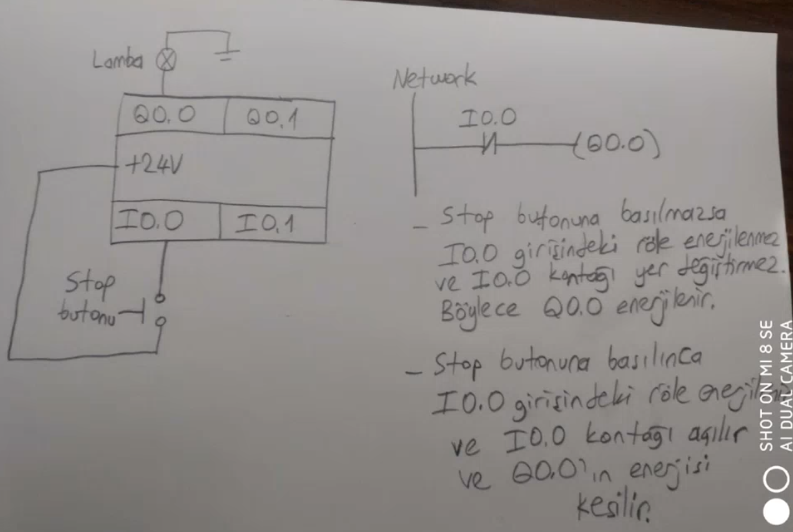 Lamba
Q0.0 Q0.1
+24V
I0.0 I0.1
Stop
butonu
Network
I0.0
(Q0.0)
- Stop butonuna basılmazsa
I0.0 girişindeki röle enerjilenmez
ve I0.0 kontağı yer değiştirmez.
Böylece Q0.0 enerjilenir.
- Stop butonuna basılınca
I0.0 girişindeki röle
ve I0.0 kontağı açılır
ve Q0.0'ın enerjisi
kesilir.
SHOT ON MI 8 SE
AI DUAL CAMERA